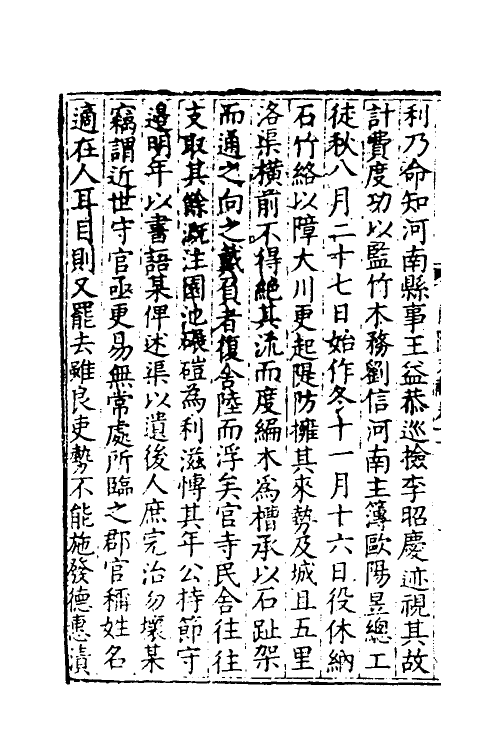 利乃命知河南縣事王益恭巡撿李昭慶迹視其故
計費度功以監竹木務劉信河南主簿歐陽昱總工
徒秋八月二十七日始作冬十一月十六日役休納
石竹絡以障大川更起隄防擁其來勢及城且五里
洛渠橫前不得絕其流而度編木為槽承以石趾架
而通之向之戴負者復舍陸而浮矣官寺民舍往往
支取其餘溉注園池碾磑為利滋愽其年公持節守
邉明年以書語某俾述渠以遺後人庶完治勿壞某
竊謂近世守官亟更易無常處所臨之郡官稱姓名
適在人耳目則又罷去雖良吏勢不能施發德惠漬